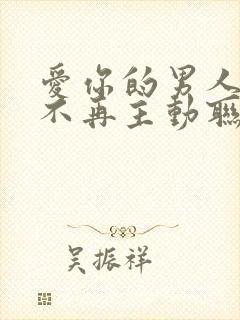 愛你的男人
不再主動聯
吳振祥